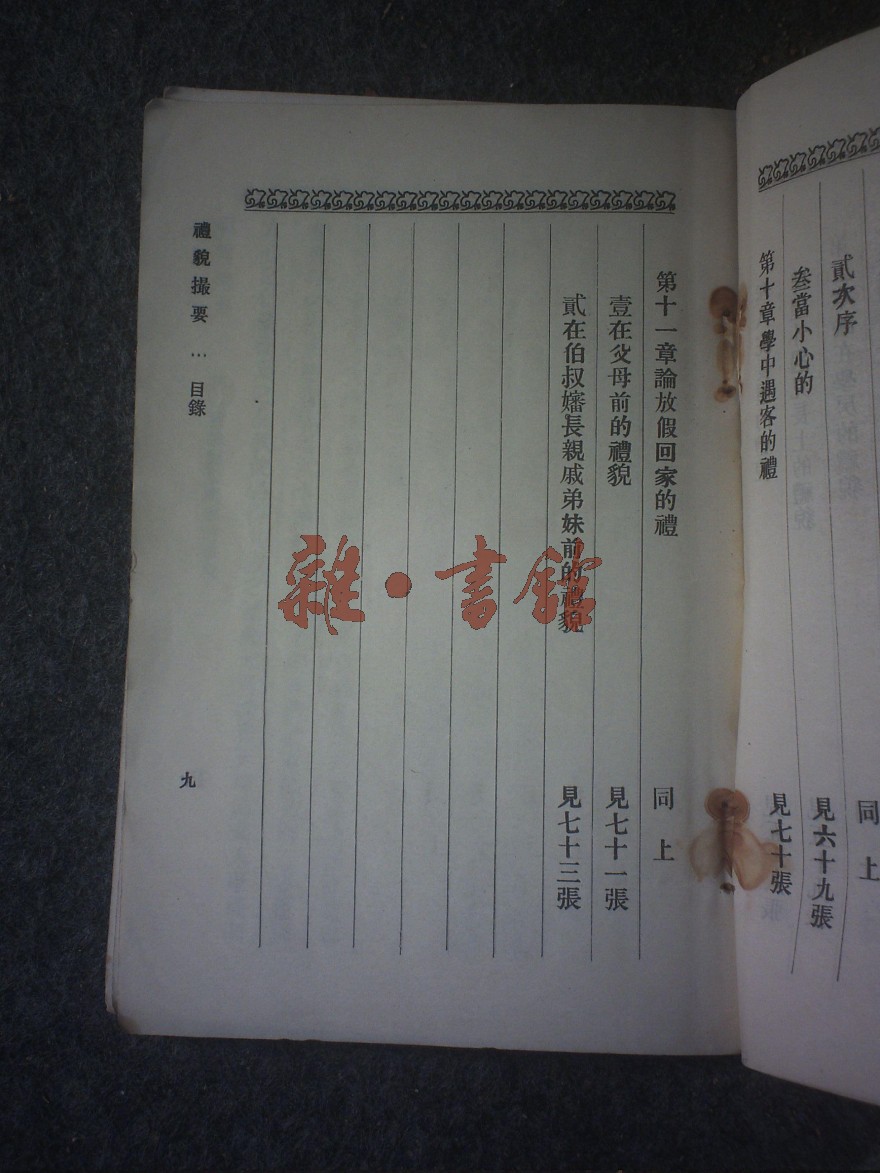 貳次序
同上
叁當小心的
見六十九張
第十章學中遇客的禮
見七十張
第十一章論放假回家的禮
同上
壹在父母前的禮貌
見七十一張
貳在伯叔嬸長親戚弟妹前的禮貌
見七十三張
禮貌撮要…目錄
九
雜·書館